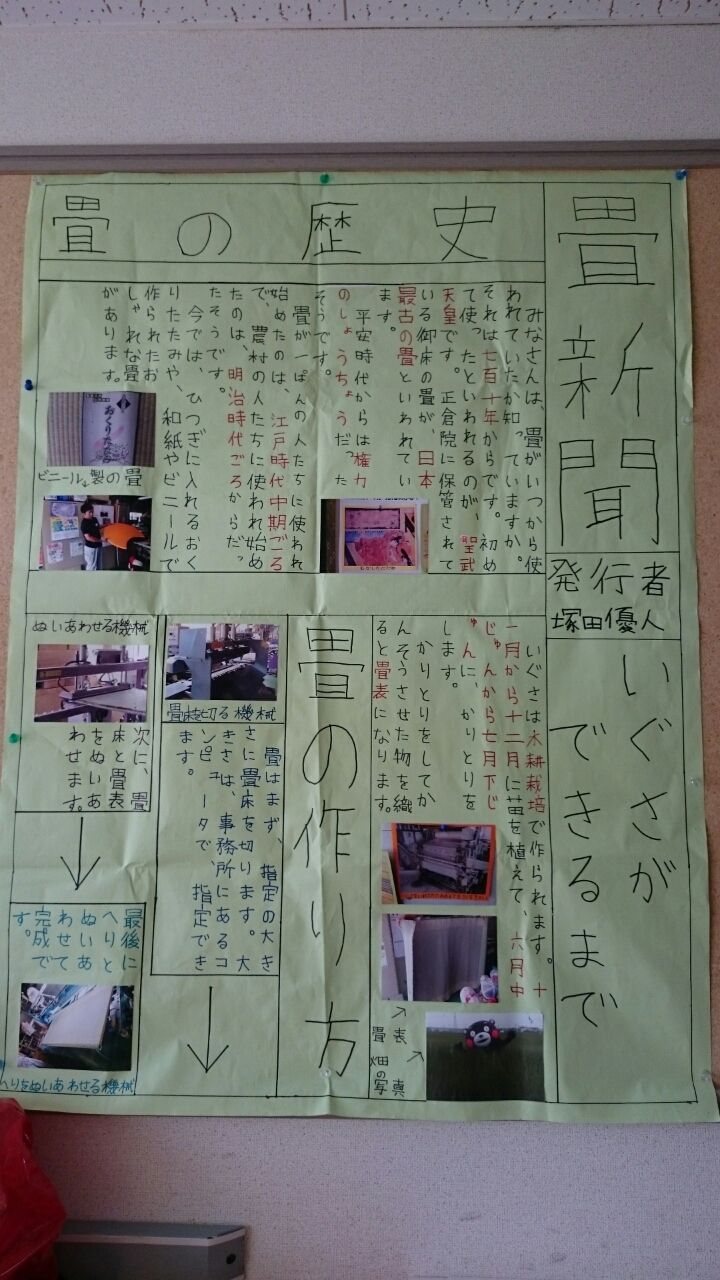 畳新聞
発行者
塚田優人
畳の歴史
みなさんは、畳がいつから使
われていたか知っていますか。
それは七百十年からです。初め
て使ったといわれるのが、聖武
天皇です。正倉院に保管されて
いる御床の畳が、日本
最古の畳といわれてい
ます。
平安時代からは権力
のしょうちょうだった
そうです。
畳が一ぱんの人たちに使われ
始めたのは、江戸時代中期ごろ
で、農村の人たちに使われ始め
たのは、明治時代ごろからだっ
たそうです。
今では、ひつぎに入れるおく
りたたみや、和紙やビニールで
作られたお
しゃれな畳
があります。
おくりたたみ
ビニール製の畳
いぐさが
できるまで
いぐさは水耕栽培で作られます。十
一月から十二月に苗を植えて、六月中
じゅんから七月下じ
ゅんに、かりとりを
します。
かりとりをしてか
んそうさせた物を織
ると畳表になります。
畳表
畑の写真
畳の作り方
畳床を切る機械
畳はまず、指定の大き
さに畳床を切ります。大
きさは、事務所にあるコ
ンピュータで、指定でき
ます。
ぬいあわせる機械
次に、畳
床と畳表
をぬいあ
わせます。
最後に
へりと
ぬいあ
わせて
完成で
す。
へりをぬいあわせる機械